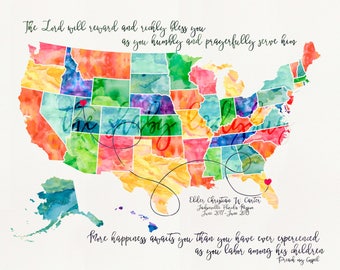 The Lord will reward and richly bless you
as you humbly and prayerfully serve him
Elder Christian W. Carter
Jacksonville Florida Mission
June 2017-June 2019
More happiness awaits you than you have ever experienced
as you labor among his children
Preach my Gospel